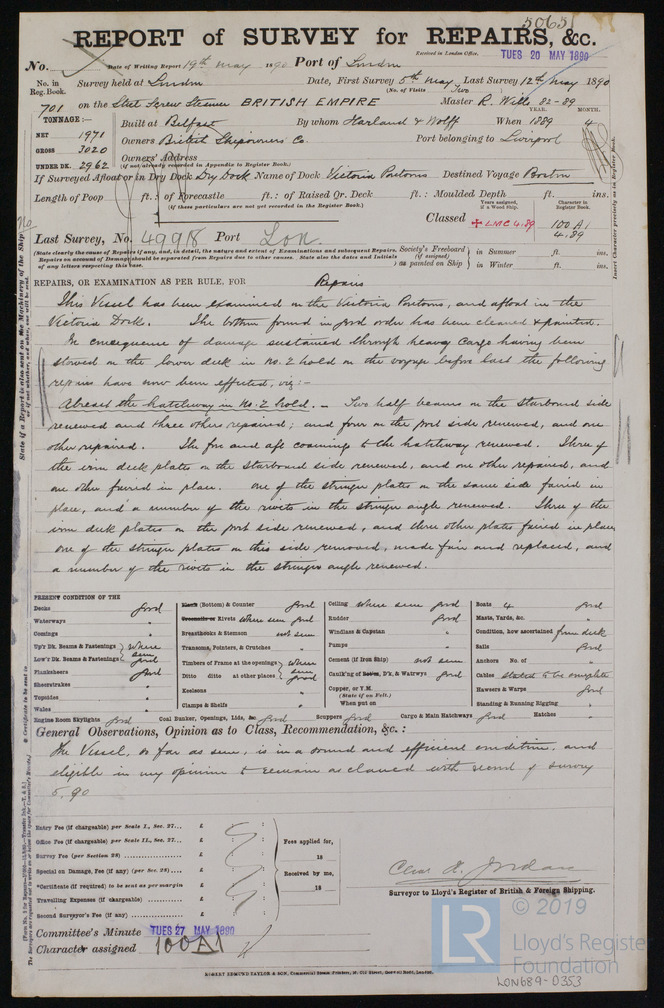 50651
REPORT of SURVEY for REPAIRS, &c.
Received in London Office, TUES 20 MAY 1890
No. Date of Writing Report 19th May 1890 Port of London
No. in Reg. Book. Survey held at London Date, First Survey 5th May Last Survey 12th May 1890
(No. of Visits Two
701 on the Steel Screw Steamer BRITISH EMPIRE Master R. Wills 82-89
YEAR. MONTH.
TONNAGE:— Built at Belfast By whom Harland & Wolff When 1889 4
NET 1971 Owners British Shipowners Co. Port belonging to Liverpool
GROSS 3020 Owners' Address
(if not already recorded in Appendix to Register Book.)
UNDER DK. 2962
If Surveyed Afloat or in Dry Dock Dry Dock Name of Dock Victoria Pontoons Destined Voyage Boston
Length of Poop ft.: of Forecastle ft.: of Raised Qr. Deck ft.: Moulded Depth ft. ins.
(if these particulars are not yet recorded in the Register Book.)
Years assigned, if a Wood Ship. Character in Register Book.
Classed ✠ LMC 4.89 100 A1
4.89
Last Survey, No. 49918 Port Lon.
(State clearly the cause of Repairs if any, and, in detail, the nature and extent of Examinations and subsequent Repairs.
Repairs on account of Damage should be separated from Repairs due to other causes. State also the dates and Initials
of any letters respecting this case.
Society's Freeboard (if assigned) as painted on Ship
in Summer ft. ins.
in Winter ft. ins.
REPAIRS, OR EXAMINATION AS PER RULE, FOR Repairs
This Vessel has been examined on the Victoria Pontoons, and afloat in the
Victoria Dock. The bottom found in good order has been cleaned & painted.
In consequence of damage sustained through heavy cargo having been
stowed on the lower deck in No. 2 hold on the voyage before last the following
repairs have now been effected, viz:—
Abreast the hatchway in No. 2 hold. — Two half beams on the starboard side
renewed and three others repaired; and four on the port side renewed, and one
other repaired. The fore and aft coamings to the hatchway renewed. Three of
the iron deck plates on the starboard side renewed, and one other repaired, and
one other faired in place. One of the stringer plates on the same side faired in
place, and a number of the rivets in the stringer angle renewed. Three of the
iron deck plates on the port side renewed, and three other plates faired in place,
one of the stringer plates on this side removed, made fair and replaced, and
a number of the rivets in the stringer angle renewed.
PRESENT CONDITION OF THE
Decks good
Waterways "
Comings "
Up'r Dk. Beams & Fastenings where seen good
Low'r Dk. Beams & Fastenings
Planksheers good
Sheerstrakes "
Topsides "
Wales "
Engine Room Skylights good
(Bottom) & Counter good
Rivets where seen good
Breasthooks & Stemson not seen
Transoms, Pointers, & Crutches "
Timbers of Frame at the openings where seen good
Ditto ditto at other places
Keelsons "
Clamps & Shelfs "
Coal Bunker, Openings, Lids, &c. good
Ceiling where seen good
Rudder good
Windlass & Capstan "
Pumps "
Cement (if Iron Ship) not seen
Caulk'ng of D'k, & Watrwys good
Copper, or Y.M.
(State if on Felt.)
When put on
Scuppers good Cargo & Main Hatchways good Hatches "
Boats 4 good
Masts, Yards, &c. "
Condition, how ascertained from deck
Sails good
Anchors No. of "
Cables stated to be complete
Hawsers & Warps good
Standing & Running Rigging "
General Observations, Opinion as to Class, Recommendation, &c. :
The Vessel, so far as seen, is in a sound and efficient condition, and
eligible in my opinion to remain as classed with record of survey
5.90
Entry Fee (if chargeable) per Scale I., Sec. 27... £
Office Fee (if chargeable) per Scale II., Sec. 27... £
Survey Fee (per Section 28) £
Special on Damage, Fee (if any) (per Sec. 28) £
Certificate (if required) to be sent as per margin
Travelling Expenses (if chargeable) £
Second Surveyor's Fee (if any) £
Fees applied for,
18
Received by me,
18
Surveyor to Lloyd's Register of British & Foreign Shipping.
Committee's Minute TUES 27 MAY 1890
Character assigned 100A1
ROBERT EDMUND TAYLOR & SON, Commercial Steam Printers, 19, Old Street, Goswell Road, London.
LR
© 2019
Lloyd's Register
Foundation
LON689-0353